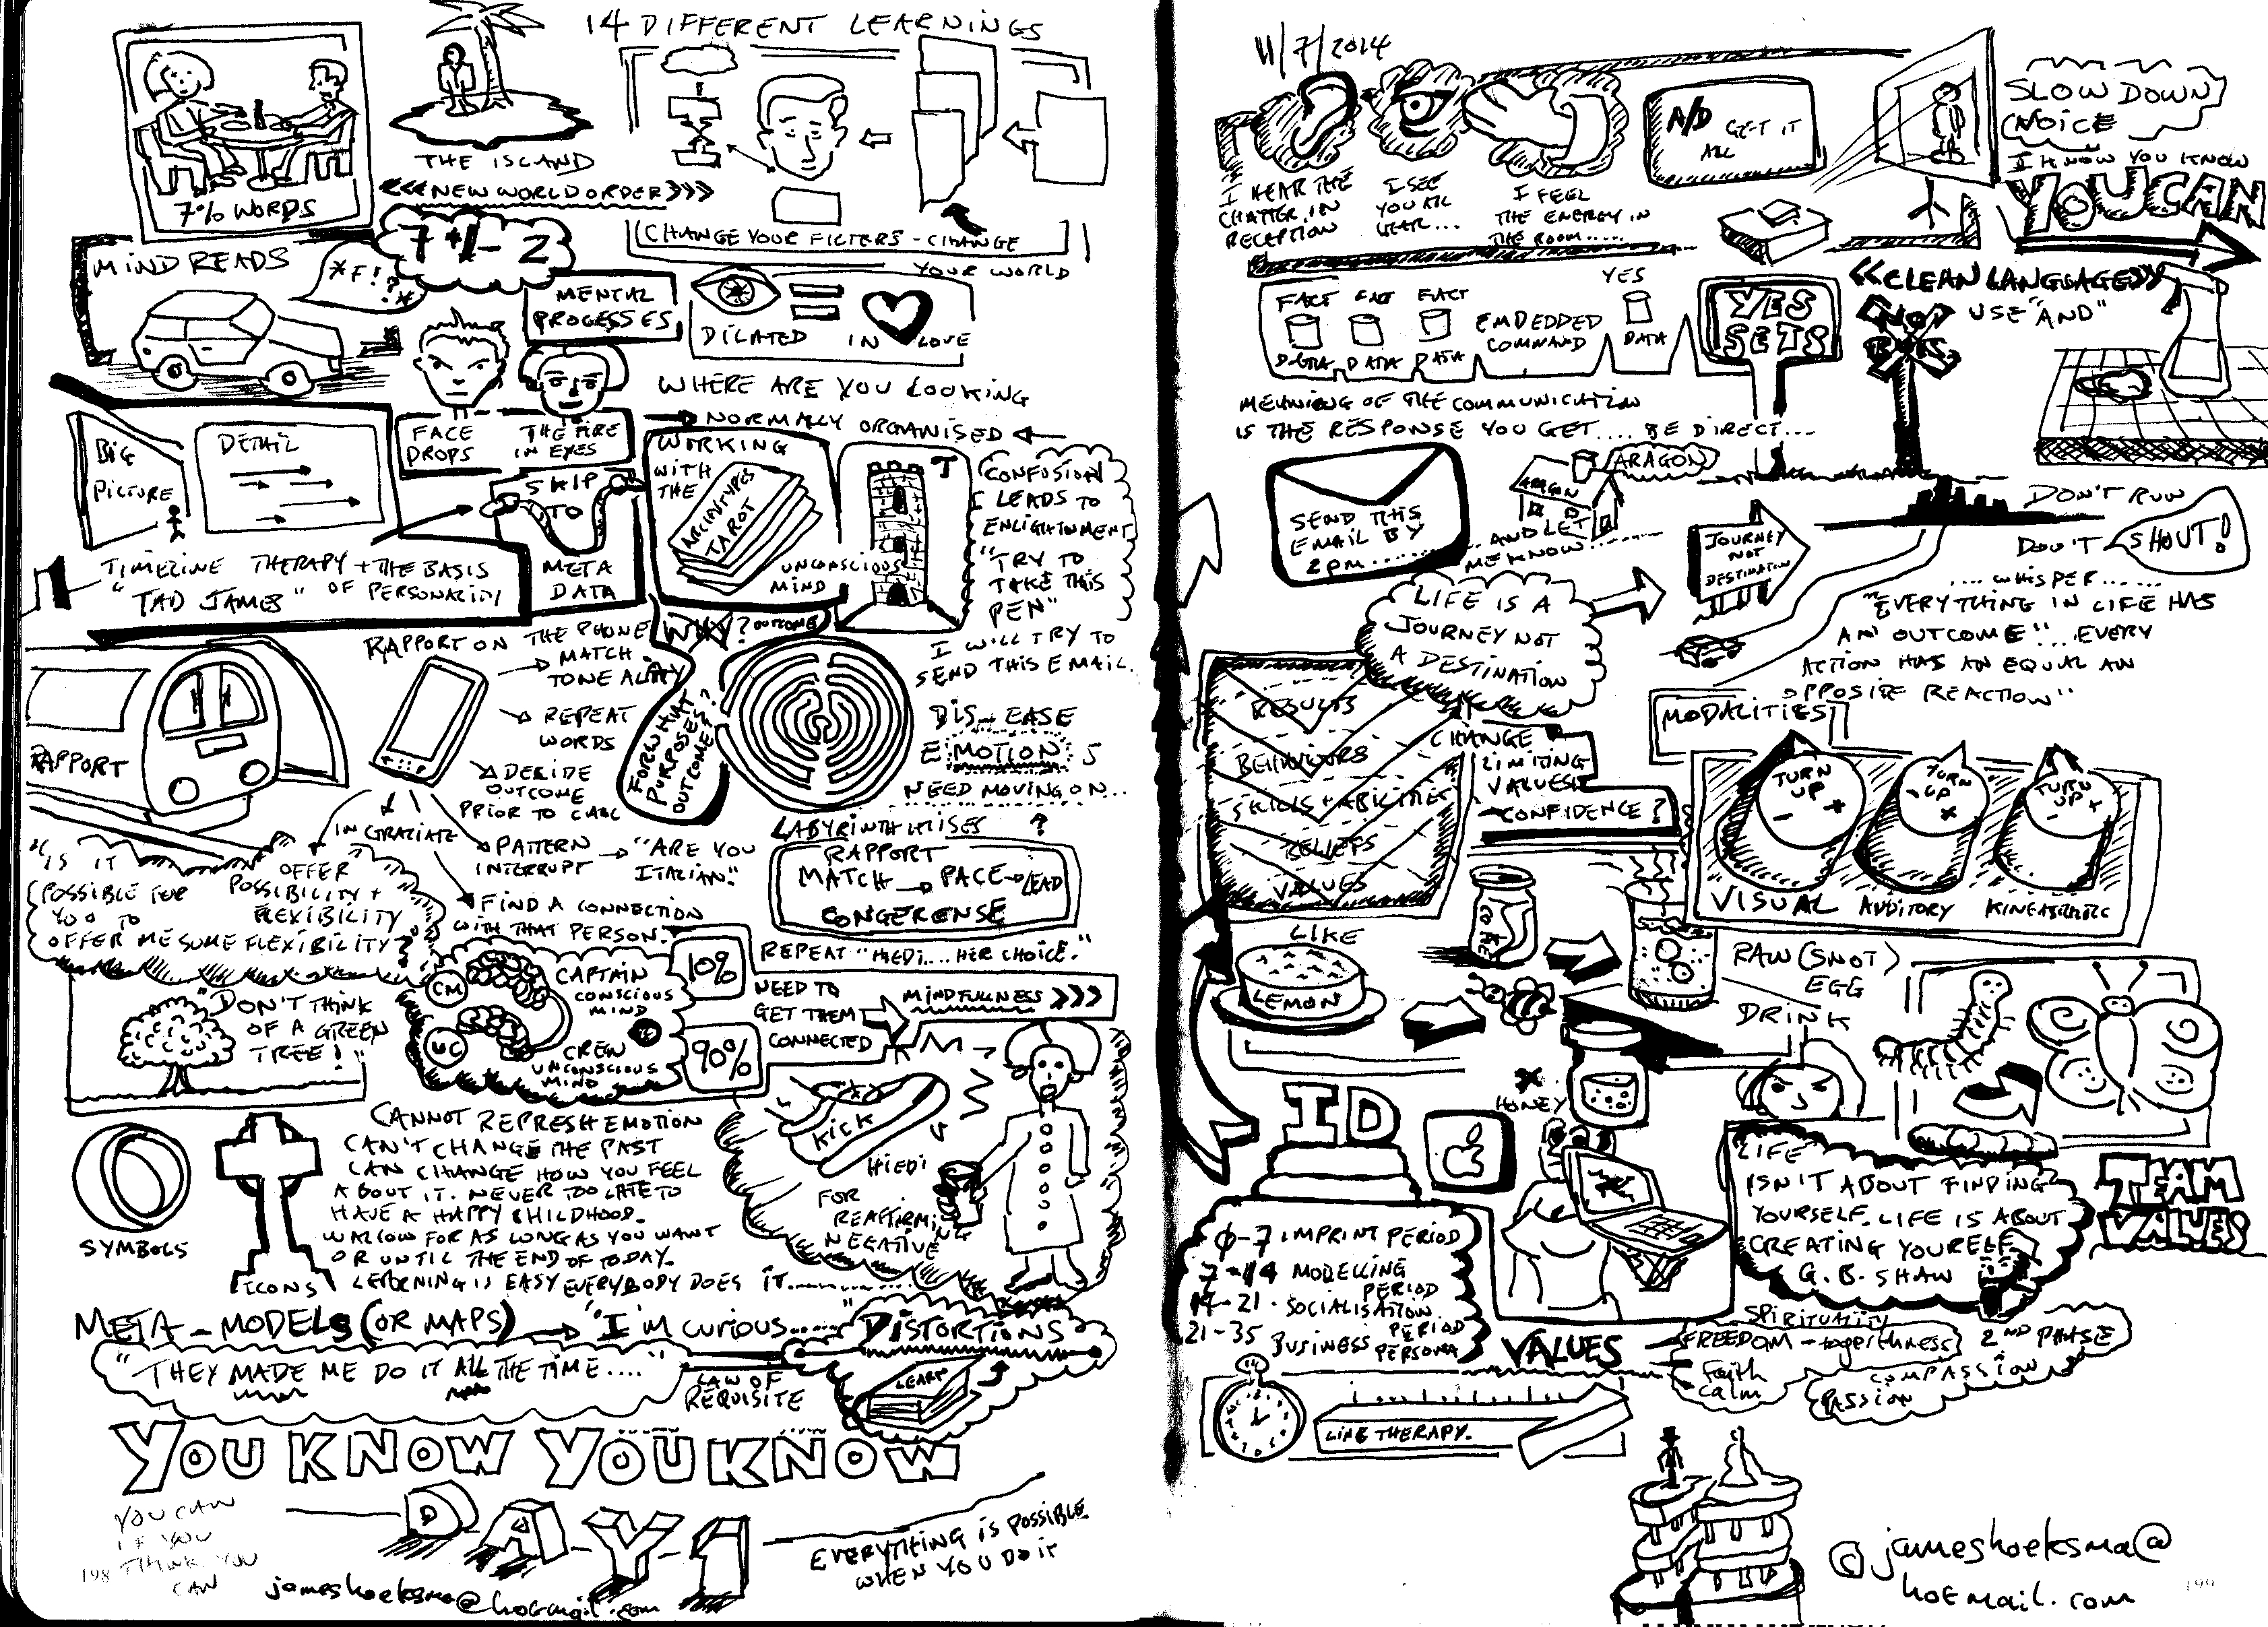 14 DIFFERENT LEARNINGS
7% WORDS
THE ISLAND
<<<NEW WORLD ORDER>>>
CHANGE YOUR FILTERS - CHANGE
YOUR WORLD
MIND READS
*F!?*
7 +/- 2
MENTAL
PROCESSES
DILATED IN LOVE
WHERE ARE YOU LOOKING
NORMALLY ORGANISED
BIG
PICTURE
DETAIL
FACE
DROPS
THE FIRE
IN EYES
SKIP
TO
META
DATA
WORKING
WITH
THE
ARCHETYPES
TAROT
UNCONSCIOUS
MIND
T
CONFUSION
LEADS TO
"TRY TO
TAKE THIS
PEN"
I WILL TRY TO
SEND THIS EMAIL.
TIMELINE THERAPY + THE BASIS
"TAD JAMES" OF PERSONALITY
RAPPORT ON THE PHONE
MATCH
TONE ALITY
REPEAT
WORDS
DECIDE
OUTCOME
PRIOR TO CALL
RAPPORT
WHY? OUTCOME
FOR WHAT
PURPOSE?
OUTCOME?
DIS-EASE
EMOTION S
NEED MOVING ON...
INGRATIATE
PATTERN
INTERRUPT
"ARE YOU
ITALIAN."
FIND A CONNECTION
WITH THAT PERSON.
?
RAPPORT
MATCH PACE LEAD
CONGERENSE
REPEAT "HIEDI.... HER CHOICE."
"IS IT
POSSIBLE FOR
YOU TO
OFFER ME SOME FLEXIBILITY?
OFFER
POSSIBILITY +
FLEXIBILITY
"DON'T THINK
OF A GREEN
TREE!
CM
CAPTAIN
CONSCIOUS
MIND
UC
CREW
UNCONSCIOUS
MIND
10%
90%
NEED TO
GET THEM
CONNECTED
MINDFULLNESS >>>
SYMBOLS
ICONS
CANNOT REFRESH EMOTION
CAN'T CHANGE THE PAST
CAN CHANGE HOW YOU FEEL
ABOUT IT. NEVER TOO LATE TO
HAVE A HAPPY CHILDHOOD.
WALLOW FOR AS LONG AS YOU WANT
OR UNTIL THE END OF TODAY.
LEARNING IS EASY EVERYBODY DOES IT...........
KICK
HIEDI
FOR
REAFFIRMING
NEGATIVE
META-MODELS (OR MAPS) "I'M CURIOUS....."
DISTORTIONS
"THEY MADE ME DO IT ALL THE TIME...."
LAW OF
REQUISITE
LEARN
YOU KNOW YOU KNOW
YOU CAN
IF YOU
THINK YOU
CAN
DAY-1
EVERYTHING IS POSSIBLE
WHEN YOU DO IT
198
jameshoeksma@hotmail.com
11/7/2014
I HEAR THE
CHATTER IN
RECEPTION
I SEE
YOU ALL
I FEEL
THE ENERGY IN
THE ROOM.....
A/D GET IT
ALL
SLOW DOWN
I KNOW YOU KNOW
YOU CAN
FACT FACT FACT
DATA DATA DATA
EMDEDDED
COMMAND
YES
DATA
YES
SETS
<<CLEAN LANGUAGE>>
USE "AND"
MEANING OF THE COMMUNICATION
IS THE RESPONSE YOU GET.... BE DIRECT...
SEND THIS
EMAIL BY
2PM......
...AND LET
ME KNOW......
ARAGON
ARAGON
JOURNEY
NOT
DESTINATION
DON'T RUN
DON'T SHOUT!
....WHISPER......
"EVERYTHING IN LIFE HAS
AN OUTCOME"...EVERY
ACTION HAS AN EQUAL AN
OPPOSITE REACTION"
LIFE IS A
JOURNEY NOT
A DESTINATION
RESULTS
BEHAVIOURS
SKILLS + ABILITIES
BELIEFS
VALUES
CHANGE
LIMITING
VALUES
CONFIDENCE?
MODALITIES
TURN
UP
- +
TURN
UP
- +
TURN
UP
- +
VISUAL AUDITORY
LIKE
LEMON
RAW (SNOT)
EGG
DRINK
HONEY
ID
0-7 IMPRINT PERIOD
7-14 MODELLING
PERIOD
14-21 . SOCIALISATION
PERIOD
21-35 BUSINESS PERSONA
LIFE
ISN'T ABOUT FINDING
YOURSELF. LIFE IS ABOUT
CREATING YOURELF
G.B. SHAW
TEAM
VALUES
VALUES
SPIRITUALITY
FREEDOM - togetherness
Faith
calm
2ND PHASE
COMPASSION
PASSION
LINE THERAPY.
© jameshoeksma@
hotmail.com
199